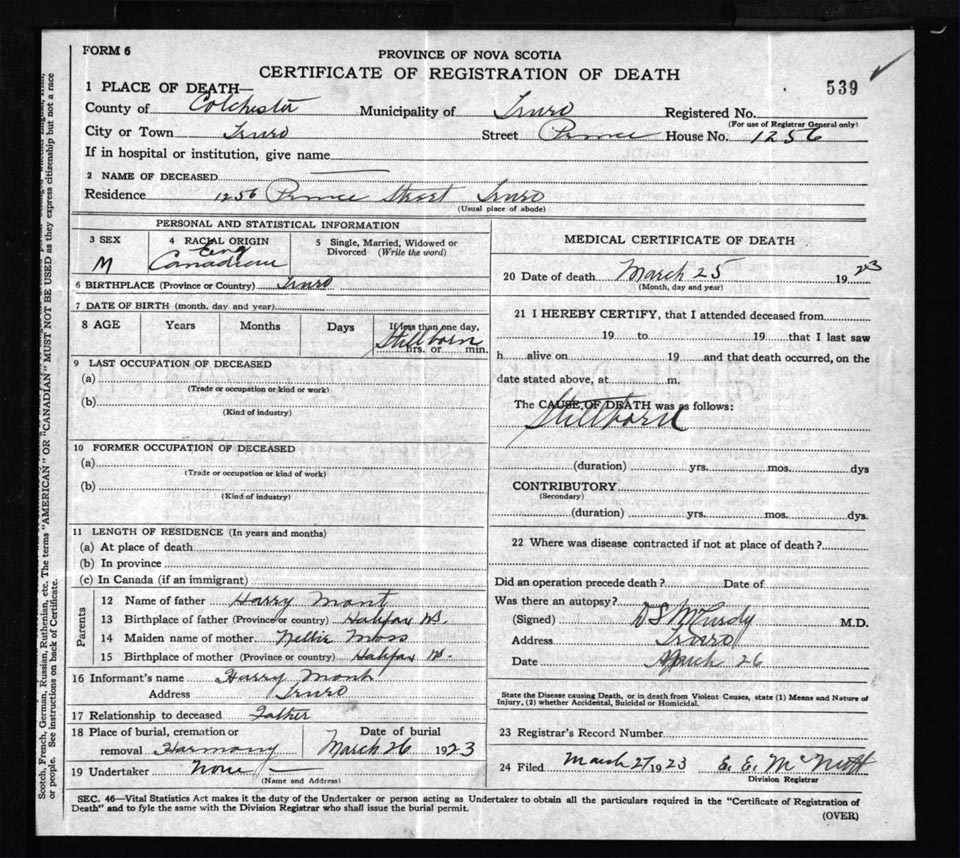 FORM 6
PROVINCE OF NOVA SCOTIA
CERTIFICATE OF REGISTRATION OF DEATH
539
1 PLACE OF DEATH—
County of Colchester Municipality of Truro Registered No.
(For use of Registrar General only)
City or Town Truro Street Prince House No. 1256
If in hospital or institution, give name
2 NAME OF DECEASED
Residence 1256 Prince Street Truro
(Usual place of abode)
PERSONAL AND STATISTICAL INFORMATION
3 SEX
M
4 RACIAL ORIGIN
Eng
Canadian
5 Single, Married, Widowed or
Divorced (Write the word)
6 BIRTHPLACE (Province or Country) Truro
7 DATE OF BIRTH (month, day and year)
8 AGE Years Months Days If less than one day,
Stillborn
hrs. or min.
9 LAST OCCUPATION OF DECEASED
(a)
(Trade or occupation or kind or work)
(b)
(Kind of industry)
10 FORMER OCCUPATION OF DECEASED
(a)
(Trade or occupation or kind of work)
(b)
(Kind of industry)
11 LENGTH OF RESIDENCE (In years and months)
(a) At place of death
(b) In province
(c) In Canada (if an immigrant)
Parents
12 Name of father Harry Mont
13 Birthplace of father (Province or country) Halifax NS.
14 Maiden name of mother Nellie Moss
15 Birthplace of mother (Province or country) Halifax NS.
16 Informant's name Harry Mont
Address Truro
17 Relationship to deceased Father
18 Place of burial, cremation or
removal Harmony
Date of burial
March 26 1923
19 Undertaker None
(Name and Address)
MEDICAL CERTIFICATE OF DEATH
20 Date of death March 25 1923
(Month, day and year)
21 I HEREBY CERTIFY, that I attended deceased from
19 to 19 that I last saw
h alive on 19 and that death occurred, on the
date stated above, at m.
The CAUSE OF DEATH was as follows:
Stillborn
(duration) yrs. mos. dys
CONTRIBUTORY
(Secondary)
(duration) yrs. mos. dys.
22 Where was disease contracted if not at place of death?
Did an operation precede death? Date of
Was there an autopsy?
(Signed) McCurdy M.D.
Address Truro
Date 26
State the Disease causing Death, or in death from Violent Causes, state (1) Means and Nature of
Injury, (2) whether Accidental, Suicidal or Homicidal.
23 Registrar's Record Number
24 Filed March 27 1923 E. E.
Division Registrar
SEC. 46—Vital Statistics Act makes it the duty of the Undertaker or person acting as Undertaker to obtain all the particulars required in the "Certificate of Registration of
Death" and to fyle the same with the Division Registrar who shall issue the burial permit.
(OVER)
Scotch, French, German, Russian, Ruthenian, etc. The terms "AMERICAN" OR "CANADIAN" MUST NOT BE USED as they express citizenship but not a race
or people. See instructions on back of Certificate.